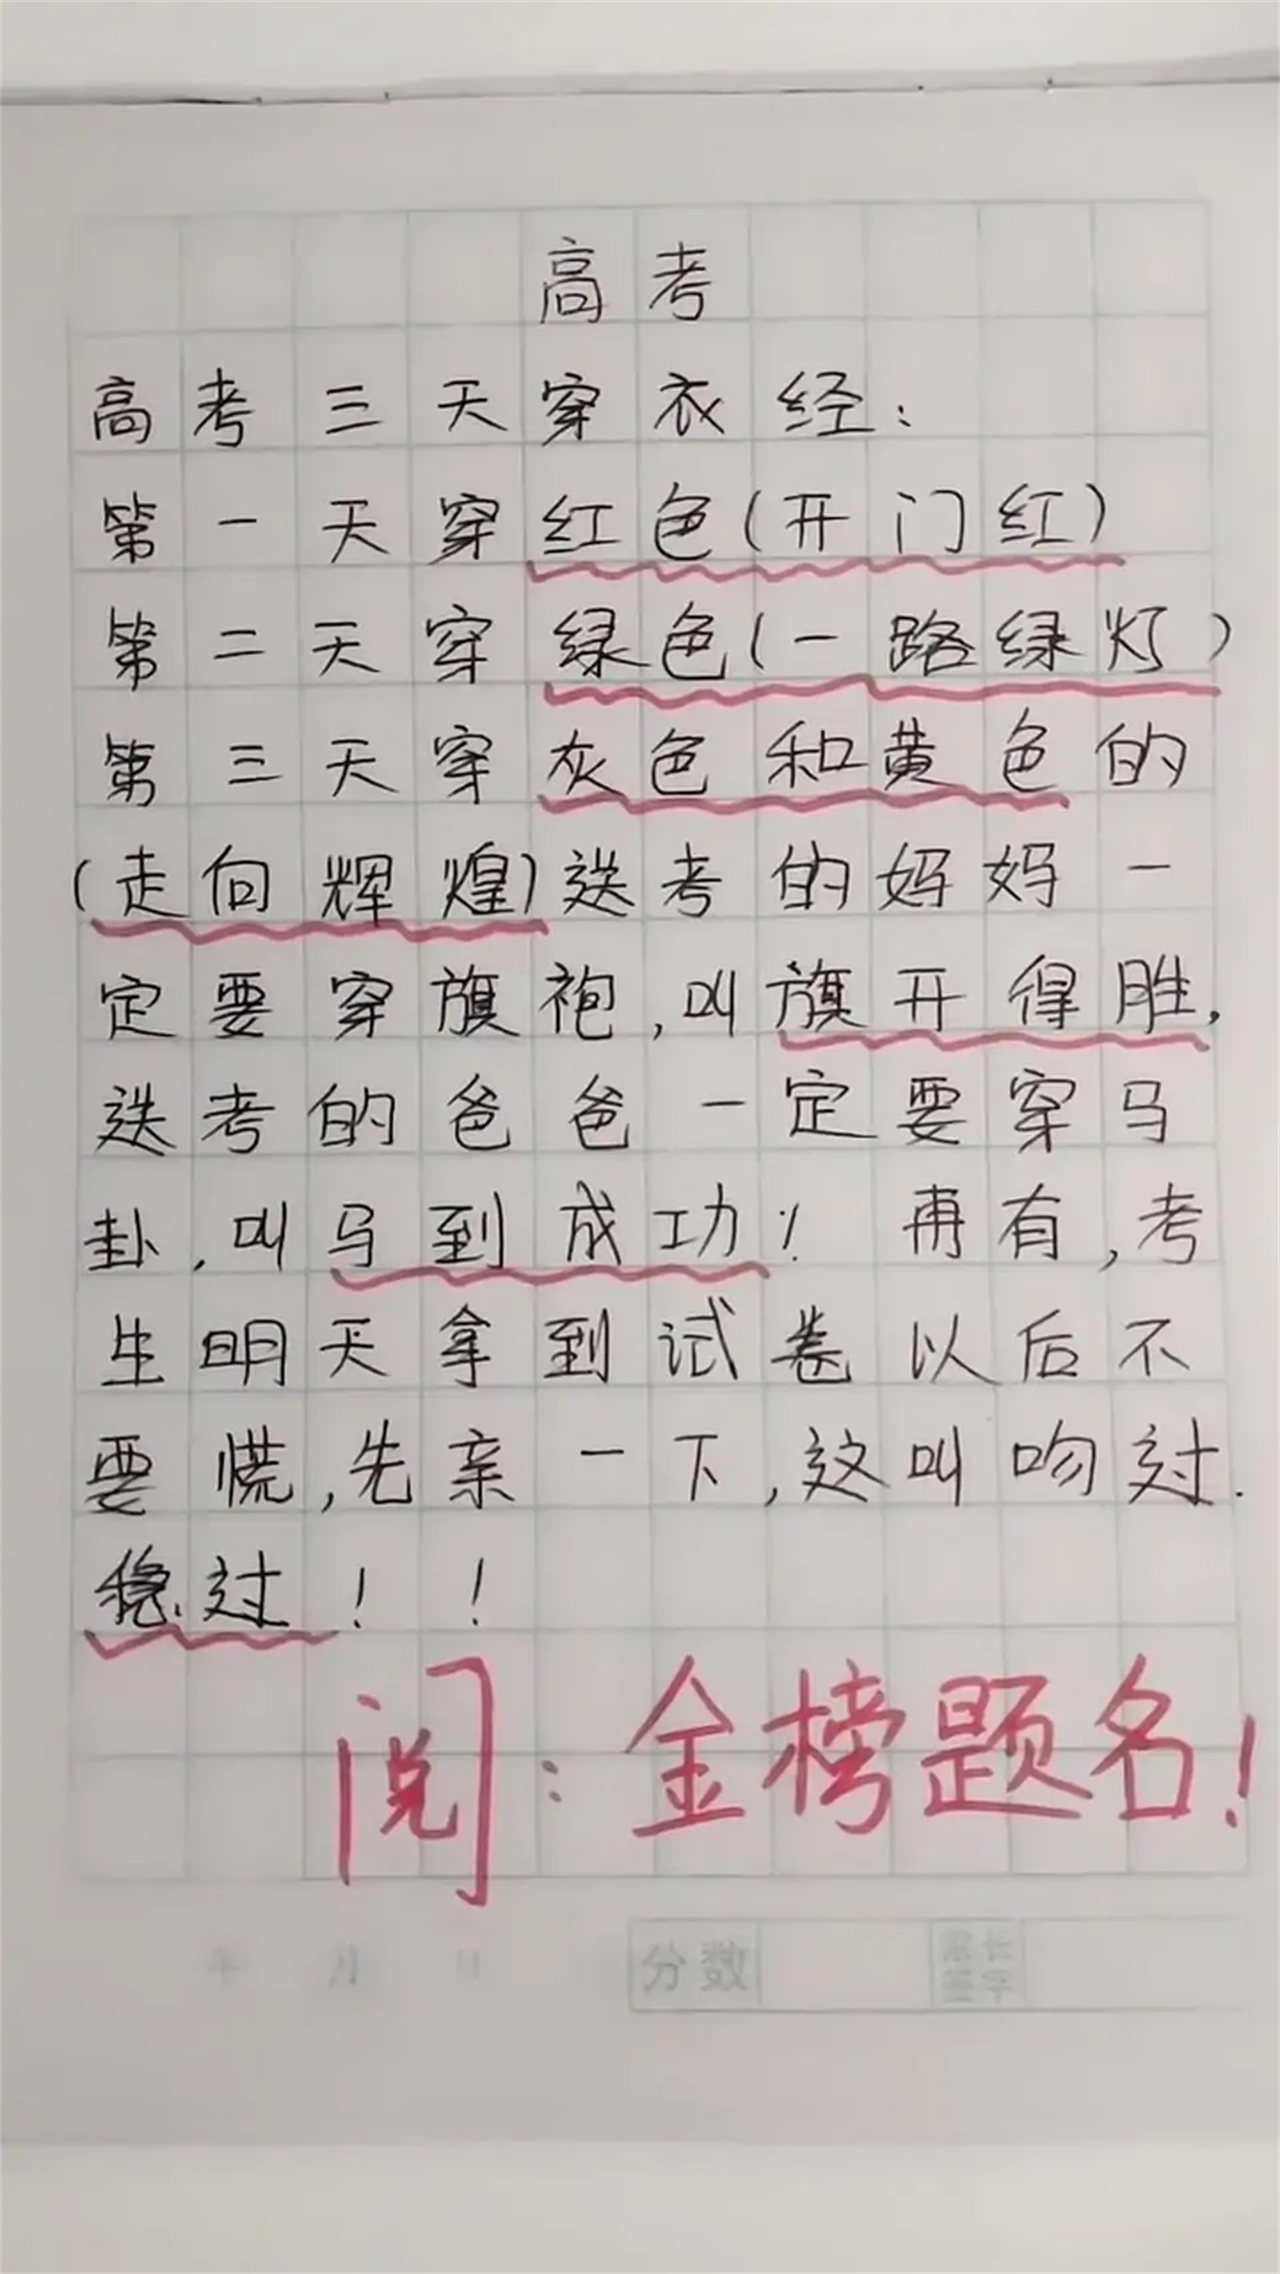 高考
高考三天穿衣经:
第一天穿红色(开门红)
第二天穿绿色(一路绿灯)
第三天穿灰色和黄色的
(走向辉煌)送考的妈妈一
定要穿旗袍,叫旗开得胜,
送考的爸爸一定要穿马
卦,叫马到成功!再有,考
生明天拿到试卷以后不
要慌,先亲一下,这叫吻过.
稳过!!
阅:金榜题名!
年 月 日 分数 家长签字